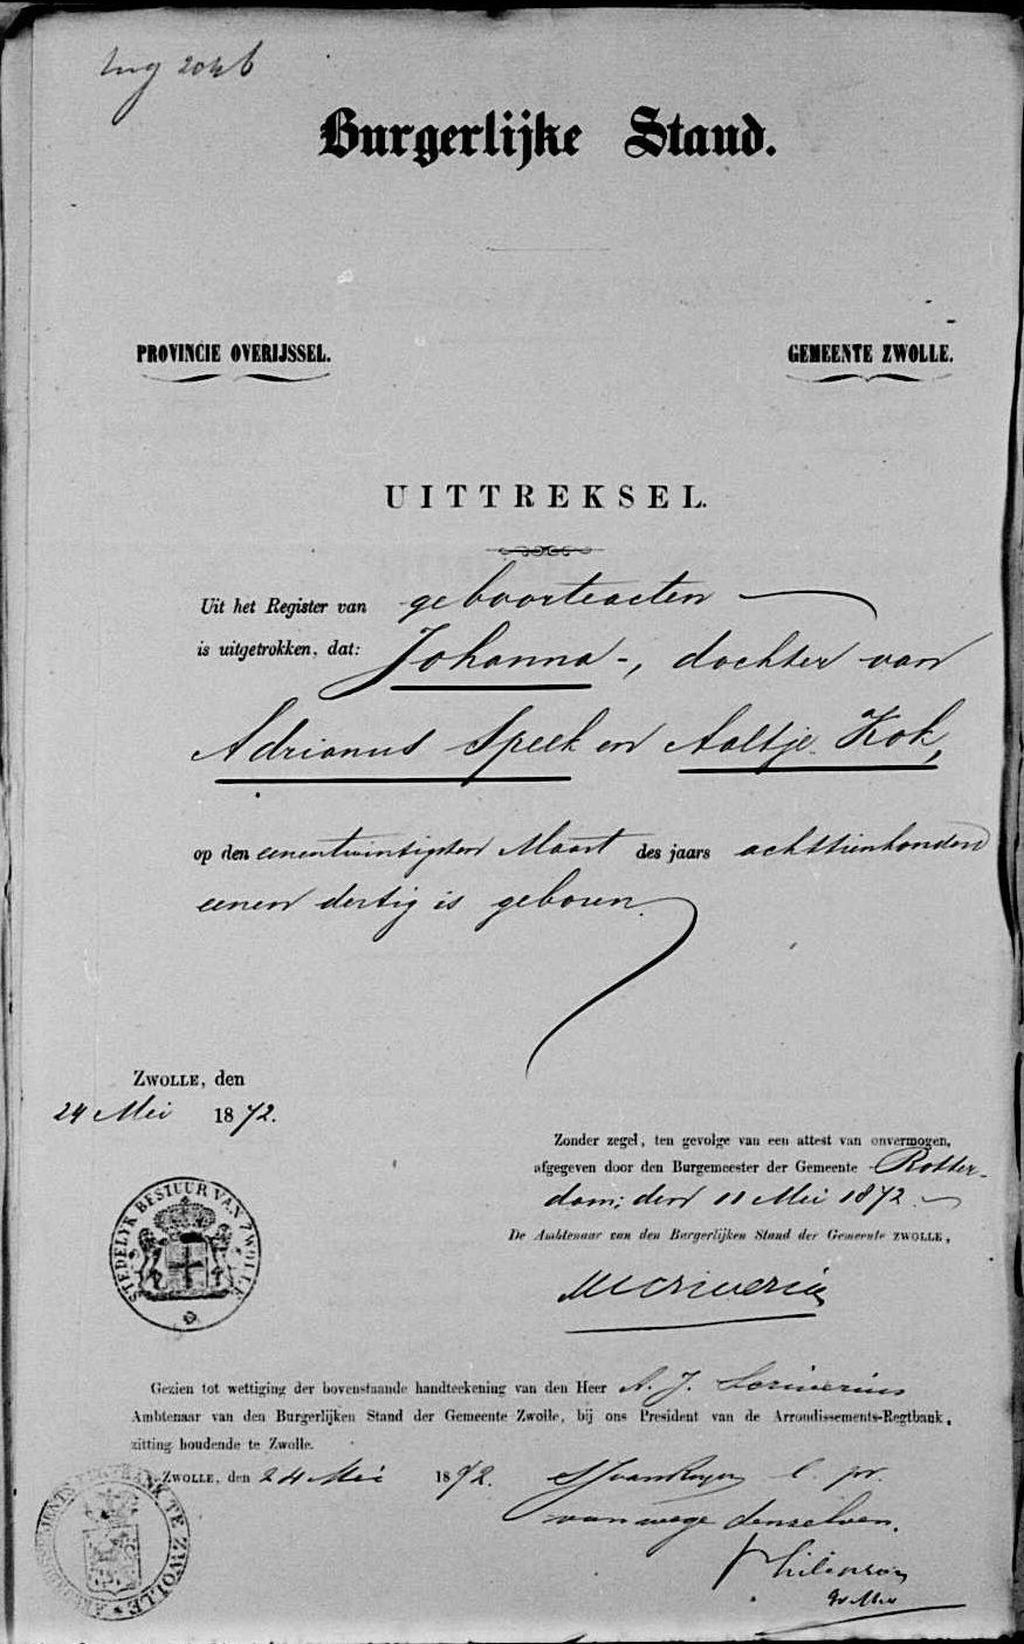 Burgerlijke Stand.
PROVINCIE OVERIJSSEL. GEMEENTE ZWOLLE.
UITTREKSEL.
Uit het Register van geboorteacten
is uitgetrokken, dat: Johanna -, dochter van
Adrianus Speek en Aaltje Kok,
op den eenentwintigsten Maart des jaars achttienhonderd
eenen dertig is geboren.
ZWOLLE, den
24 Mei 1872.
Zonder zegel, ten gevolge van een attest van onvermogen,
afgegeven door den Burgemeester der Gemeente Rotter-
dam, den 11 Mei 1872.
De Ambtenaar van den Burgerlijken Stand der Gemeente ZWOLLE,
STEDELYK BESTUUR VAN ZWOLLE
Gezien tot wettiging der bovenstaande handteekening van den Heer A. J. Scriverius
Ambtenaar van den Burgerlijken Stand der Gemeente Zwolle, bij ons President van de Arrondissements-Regtbank,
zitting houdende te Zwolle.
ZWOLLE, den 24 Mei 1872.
van wege denzelven.